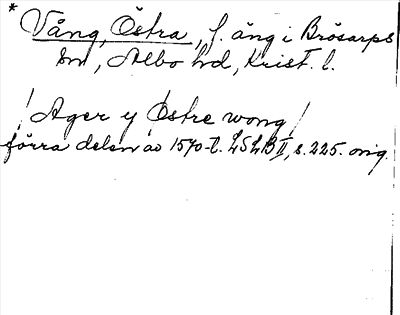 * Vång, Östra, f. äng i Brösarps
sn, Albo hd, Krist. l.
/Ager y Østre wong/
förra delen av 1570-t. LSLB II, s. 225. orig.